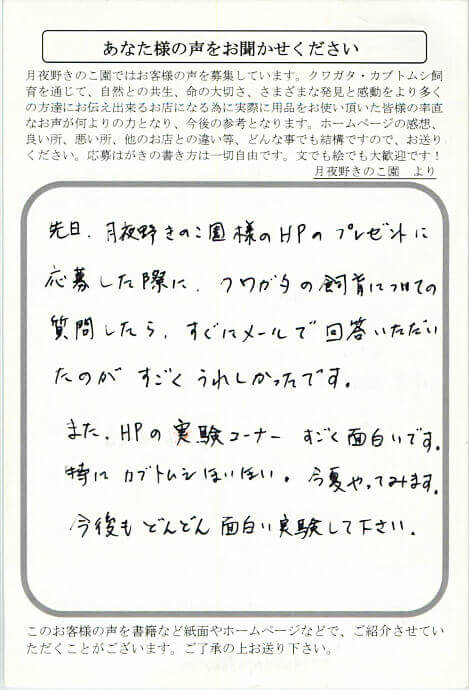 あなた様の声をお聞かせください
月夜野きのこ園ではお客様の声を募集しています。クワガタ・カブトムシ飼
育を通じて、自然との共生、命の大切さ、さまざまな発見と感動をより多く
の方達にお伝え出来るお店になる為に実際に用品をお使い頂いた皆様の率直
なお声が何よりの力となり、今後の参考となります。ホームページの感想、
良い所、悪い所、他のお店との違い等、どんな事でも結構ですので、お送り
ください。応募はがきの書き方は一切自由です。文でも絵でも大歓迎です！
月夜野きのこ園　より
先日、月夜野きのこ園様のHPのプレゼントに
応募した際に、クワガタの飼育についての
質問したら、すぐにメールで回答いただい
たのがすごくうれしかったです。
また、HPの実験コーナーすごく面白いです。
特にカブトムシほいほい。今夏やってみます。
今後もどんどん面白い実験して下さい。
このお客様の声を書籍など紙面やホームページなどで、ご紹介させてい
ただくことがございます。ご了承の上お送り下さい。